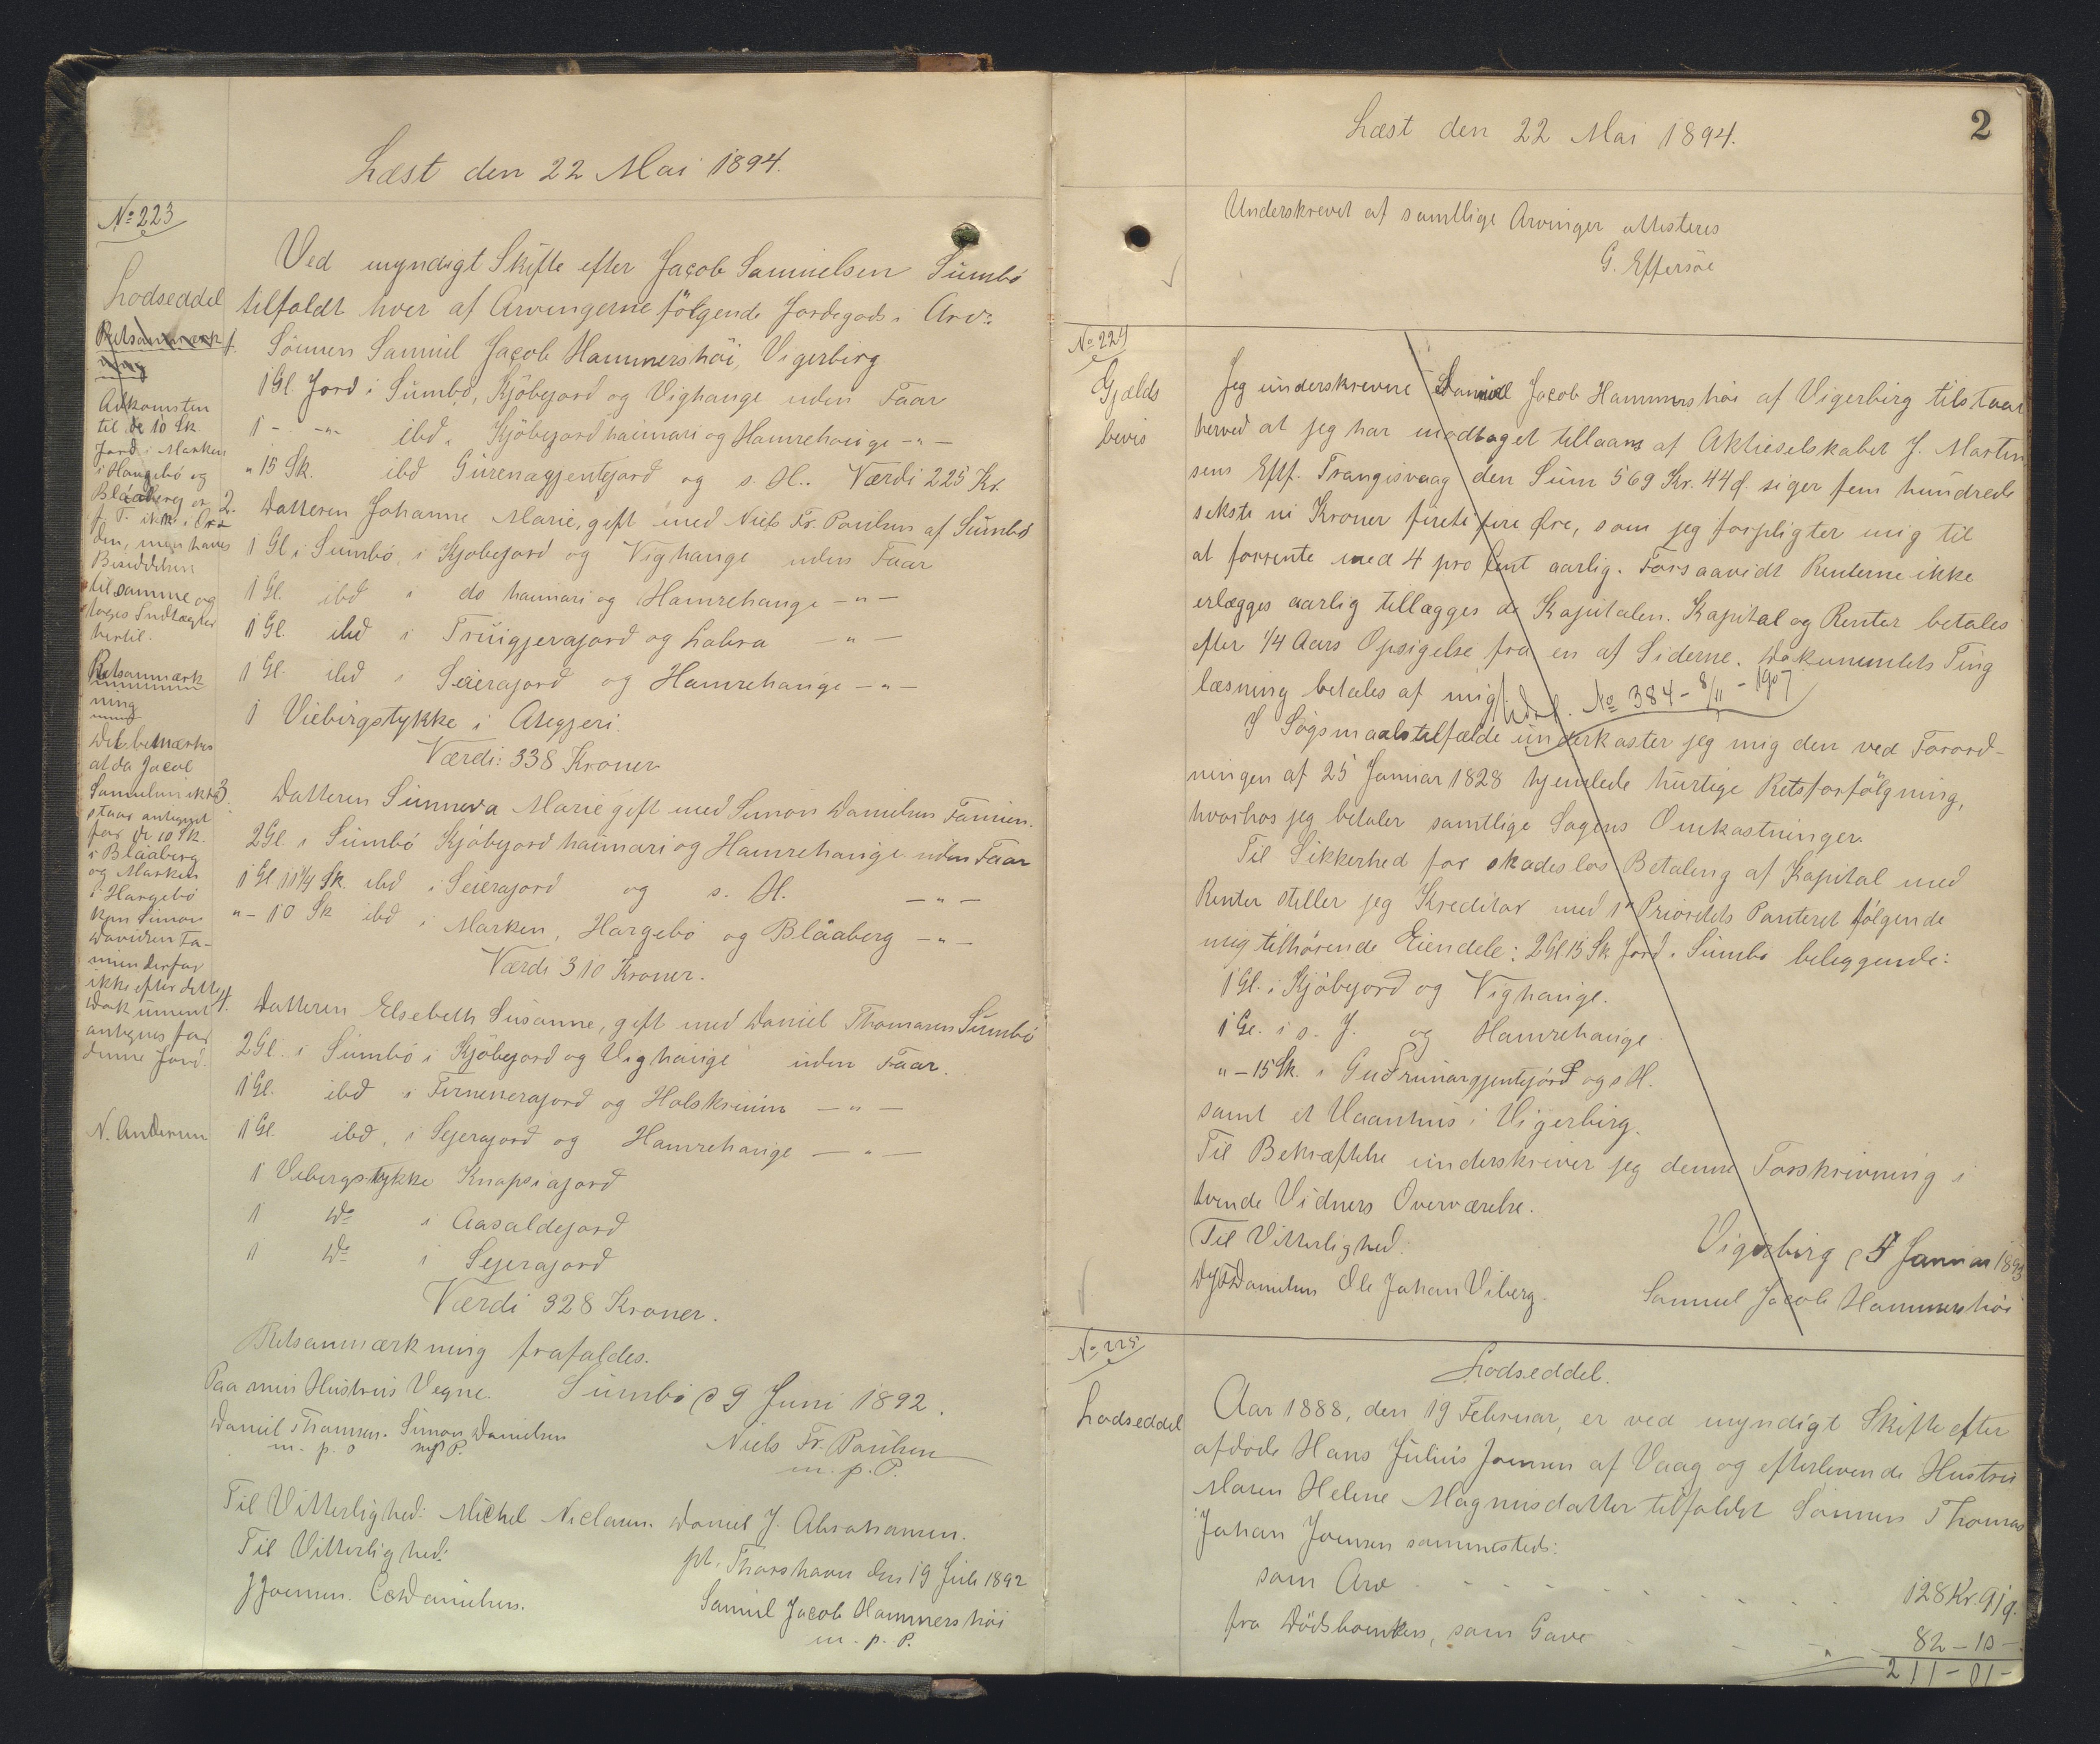 Læst den 22 Mai 1894.
No 223
Lodseddel
Ved myndigt Skifte efter Jacob Samuelsen Sumbø
tilfaldt hver af Arvingerne følgende Jordegods i Arv:
1. Sönnen Samuel Jacob Hammershöi, Vigerbirg
1 Gl Jord i Sumbø, Kjöbejord og Vighauge uden Faar
1 - -"- ibd. Kjöbejord haimari og Hamrehauge -"-
" 15 Sk. ibd Gürenagjentejord og s. H. Værdi 225 Kr.
2. Datteren Johanne Marie, gift med Niels Fr. Poulsen af Sumbö
1 Gl i Sumbö, i Kjöbejord og Vighauge uden Faar
1 Gl. ibd i do haimari og Hamrehauge -"-
1 Gl. ibd i Truigjerajord og Labra -"-
1 Gl. ibd i Seierajord og Hamrehauge -"-
1 Viebirgstykke i Ategjeri.
Værdi: 338 Kroner
3. Datteren Sunneva Marie gift med Simon Danielsen Famien.
2 Gl. i Sumbö Kjöbejord haimari og Hamrehauge uden Faar
1 Gl 11 1/4 Sk. ibd i Seierajord og s. H. -"-
" - 10 Sk ibd i Marken, Hargebö og Blåaberg -"-
Værdi 310 Kroner.
4. Datteren Elsebeth Susanne, gift med Daniel Thomasen Sumbö
2 Gl. i Sumbö i Kjöbejord og Vighauge uden Faar.
1 Gl. ibd i Firnenerajord og Holskruim -"-
1 Gl. ibd, i Sejerajord og Hamrehauge -"-
1 Vebergstykke Knapsiajord
1 Do i Aasaldejord
1 Do i Sejerajord
Værdi 328 Kroner.
Retsanmærkning frafaldes.
Paa min Hustrus Vegne. Sumbö d 9 Juni 1892.
Daniel Thomsen. Simon Danielsen Niels Fr. Poulsen
m. p. P. m. p. P.
Til Vitterlighed: Michel Niclasen. Daniel J. Abrahamsen.
Til Vitterlighed: pt. Thorshavn den 19 Juli 1892
J Joensen. C Danielsen. Samuel Jacob Hammershöi
m. p. P.
Retsanmærk
ning
Adkomsten
til de 10 Sk
Jord i Marken
i Haugebö og
Blåaberg er
p. T. ikke i Or
den, men haves
Besiddelsen
til samme og
toges Indtægter
hertil.
Retsanmærk
ning
Det bemærkes
at da Jacob
Samuelsen ikke
staar antegnet
for de 10 Sk.
i Blåaberg
og Marken
i Hargebö
kan Simon
Davidsen Fa-
mien derfor
ikke efter dette
Dokument
antegnes for
denne Jord.
N. Andersen
2
Læst den 22 Mai 1894.
Underskrevet af samtlige Arvinger attesteres
G. Effersöe
No 224
Gjælds
bevis
Jeg underskrevne Samuel Jacob Hammershöi af Vigerbirg tilstaar
herved at jeg har modtaget tillaans af Aktieselskabet J. Morten
sens Eftf. Trangisvaag den Sum 569 Kr. 44 ø. siger fem hundrede
sekste ni Kroner fireti fire Øre, som jeg forpligter mig til
at forrente med 4 pro Cent aarlig. Forsaavidt Renterne ikke
erlægges aarlig tillægges de Kapitalen. Kapital og Renter betales
efter 1/4 Aars Opsigelse fra en af Siderne. Dokumentets Ting
læsning betales af mig. Udsl. No 384 - 8/11 - 1907
I Søgsmaalstilfælde underkaster jeg mig den ved Forord-
ningen af 25 Januar 1828 hjemlede hurtige Retsforfölgning,
hvorhos jeg betaler samtlige Sagens Omkostninger.
Til Sikkerhed for skadeslos Betaling af Kapital med
Renter stiller jeg Kreditor med 1ste Prioritets Panteret følgende
mig tilhörende Eiendele: 2 Gl 15 Sk Jord i Sumbø beliggende:
1 Gl. i Kjöbejord og Vighauge.
1 Gl. i s. J. og Hamrehauge
" - 15 Sk. i Gudrunargjentejord og s H.
samt et Vaanhus i Vigerbirg.
Til Bekræftelse underskriver jeg denne Forskrivning i
tvende Vidners Overværelse.
Til Vitterlighed: Vigerbirg d 4 Januar 1893
Danielsen Ole Johan Viberg. Samuel Jacob Hammershöi
No 225
Lodseddel
Lodseddel.
Aar 1888, den 19 Februar, er ved myndigt Skifte efter
afdöde Hans Julius Joensen af Vaag og efterlevende Hustru
Maren Helene Magnusdatter tilfaldet Sönnen Thomas
Johan Joensen sammesteds:
som Arv 128 Kr. 91 ø.
fra Dödsboenken, som Gave 82 - 10 -
211 - 01 -